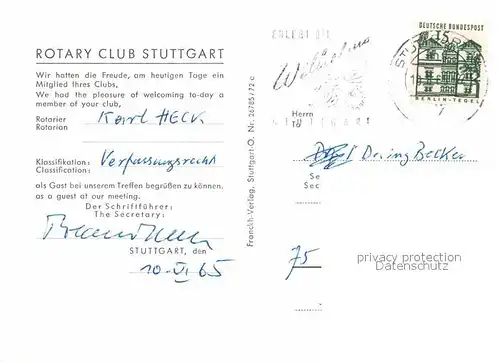 ROTARY CLUB STUTTGART
Wir hatten die Freude, am heutigen Tage ein
Mitglied Ihres Clubs,
We had the pleasure of welcoming to-day a
member of your club,
Rotarier
Rotarian
Karl HECK
Klassifikation:
Classification:
Verfassungsrecht
als Gast bei unserem Treffen begrüßen zu können.
as a guest at our meeting.
Der Schriftführer:
The Secretary:
STUTTGART, den
10. VI 65
Franckh-Verlag, Stuttgart-O. Nr. 26785/72c
ERLEBT DIE
Wilhelma
STUTTGART
DEUTSCHE BUNDESPOST
15
BERLIN-TEGEL
Herrn
Dr. ing Becker
Se
Sec
75
privacy protection
Datenschutz